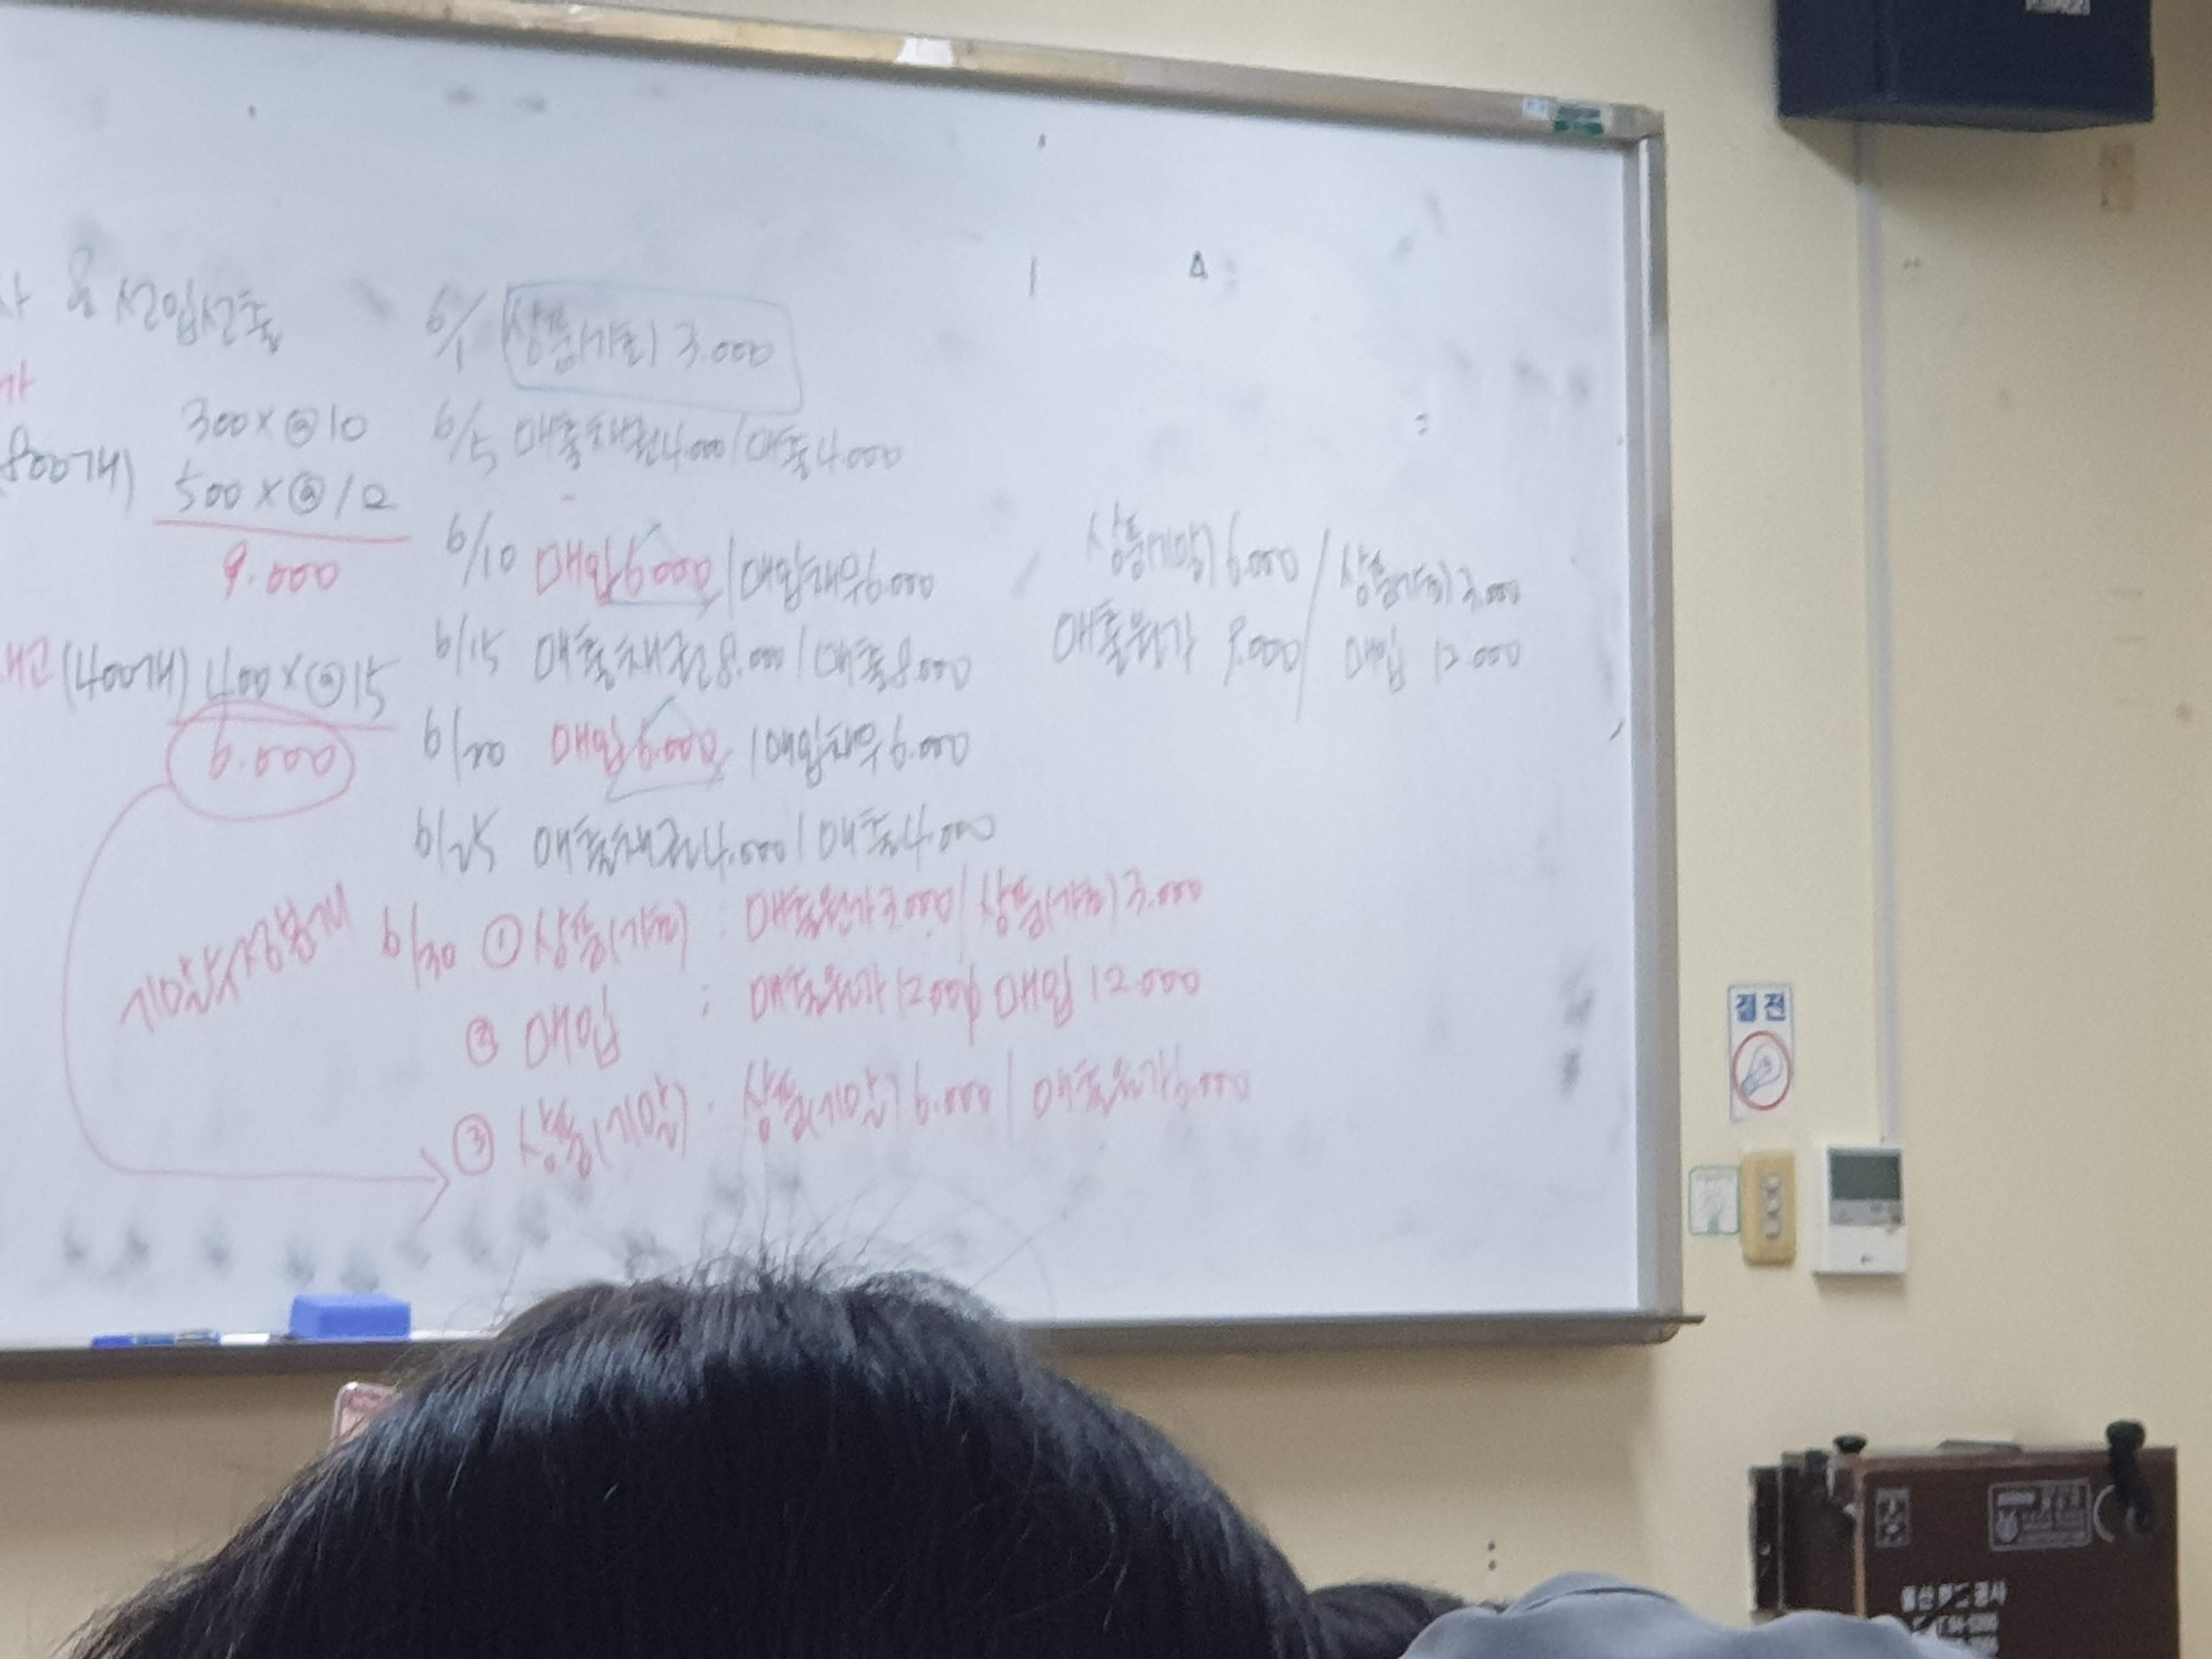 & 선입선출
300×@10
800개) 500×@12
9.000
재고(400개) 400×@15
6.000
6/1 상품(기초) 3.000
6/5 매출채권4.000/매출4.000
6/10 매입6.000/매입채무6.000
6/15 매출채권8.000/매출8.000
6/20 매입6.000/매입채무6.000
6/25 매출채권4.000/매출4.000
기말수정분개
6/30 ①상품(기초) : 매출원가3.000/상품(기초)3.000
② 매입 : 매출원가12.000/매입 12.000
③ 상품(기말) : 상품(기말)6.000/매출원가6.000
상품(기말)6.000/상품(기초)3.000
매출원가 9.000/매입 12.000
절전